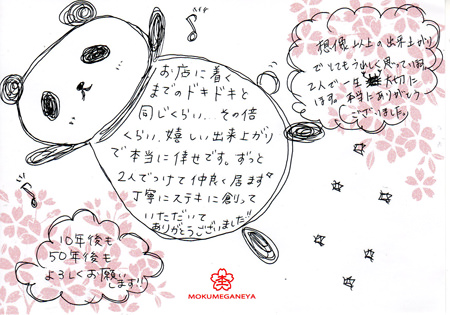 お店に着く
までのドキドキと
同じくらい…その倍
くらい、嬉しい出来上がり
で本当に倖せです。ずっと
2人でつけて仲良く居ます。
丁寧にステキに創って
いただいて
ありがとうございました!!
想像以上の出来上がり
でとてもうれしく思っています。
2人で一生大切に
します。本当にありがとう
ございました。
10年後も
50年後も
よろしくお願い
します!!
MOKUMEGANEYA